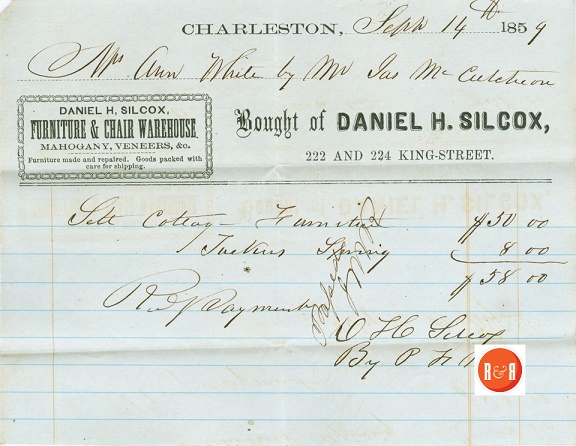 CHARLESTON, Sept 14th 1859
Mrs Ann White by Mr Jas McCutcheon
DANIEL H. SILCOX,
FURNITURE & CHAIR WAREHOUSE,
MAHOGANY, VENEERS, &c.
Furniture made and repaired. Goods packed with
care for shipping.
Bought of DANIEL H. SILCOX,
222 AND 224 KING-STREET.
Sett Cottage Furniture $50 00
1 Tuckers Spring 8 00
$58 00
Recd Payment
D H Silcox
By P
R&R